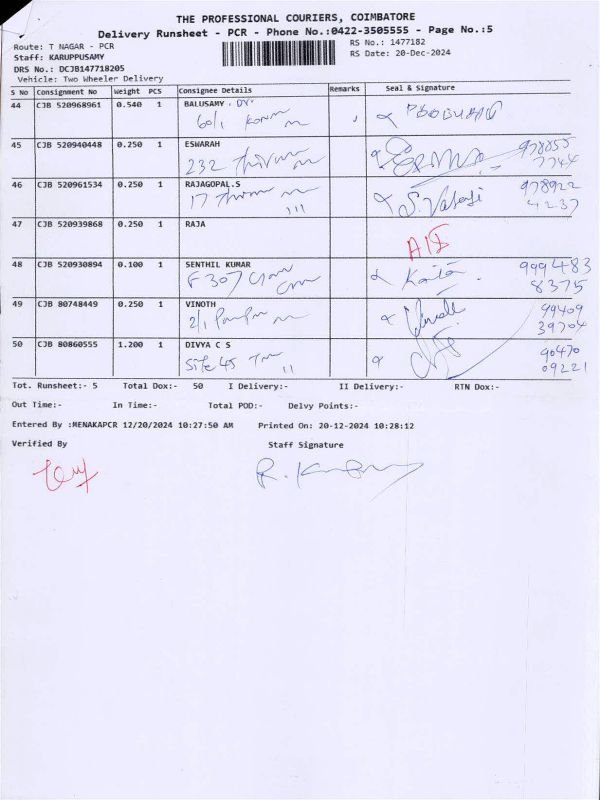 THE PROFESSIONAL COURIERS, COIMBATORE
Delivery Runsheet - PCR - Phone No.:0422-3505555 - Page No.:5
Route: T NAGAR - PCR
RS No.: 1477182
Staff: KARUPPUSAMY
RS Date: 20-Dec-2024
DRS No.: DCJB147718205
Vehicle: Two Wheeler Delivery
S No Consignment No Weight PCS Consignee Details Remarks Seal & Signature
44 CJB 520968961 0.540 1 BALUSAMY . DV.
60/1
45 CJB 520940448 0.250 1 ESWARAH
232 978855
7744
46 CJB 520961534 0.250 1 RAJAGOPAL.S
17 978922
4237
47 CJB 520939868 0.250 1 RAJA
48 CJB 520930894 0.100 1 SENTHIL KUMAR
F 307 999483
8375
49 CJB 80748449 0.250 1 VINOTH
2/1 99409
39704
50 CJB 80860555 1.200 1 DIVYA C S
Site 45 90470
09221
Tot. Runsheet:- 5 Total Dox:- 50 I Delivery:- II Delivery:- RTN Dox:-
Out Time:- In Time:- Total POD:- Delvy Points:-
Entered By :MENAKAPCR 12/20/2024 10:27:50 AM Printed On: 20-12-2024 10:28:12
Verified By Staff Signature